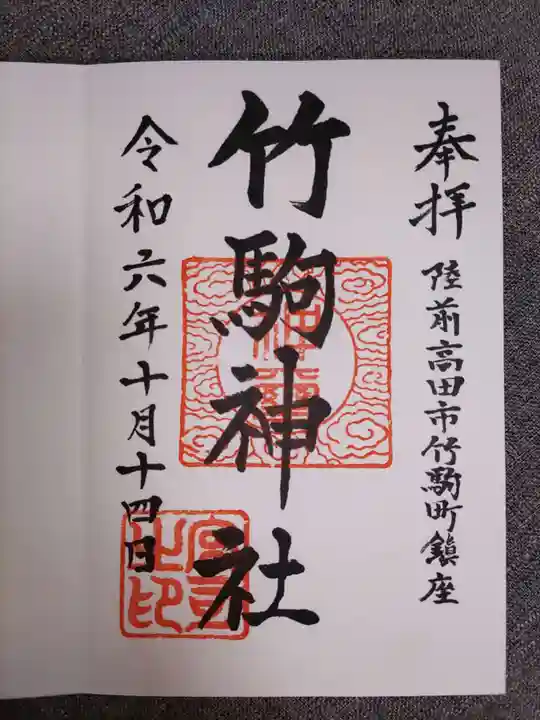 奉拝
陸前高田市竹駒町鎮座
竹駒神社
令和六年十月十四日
宮司之印